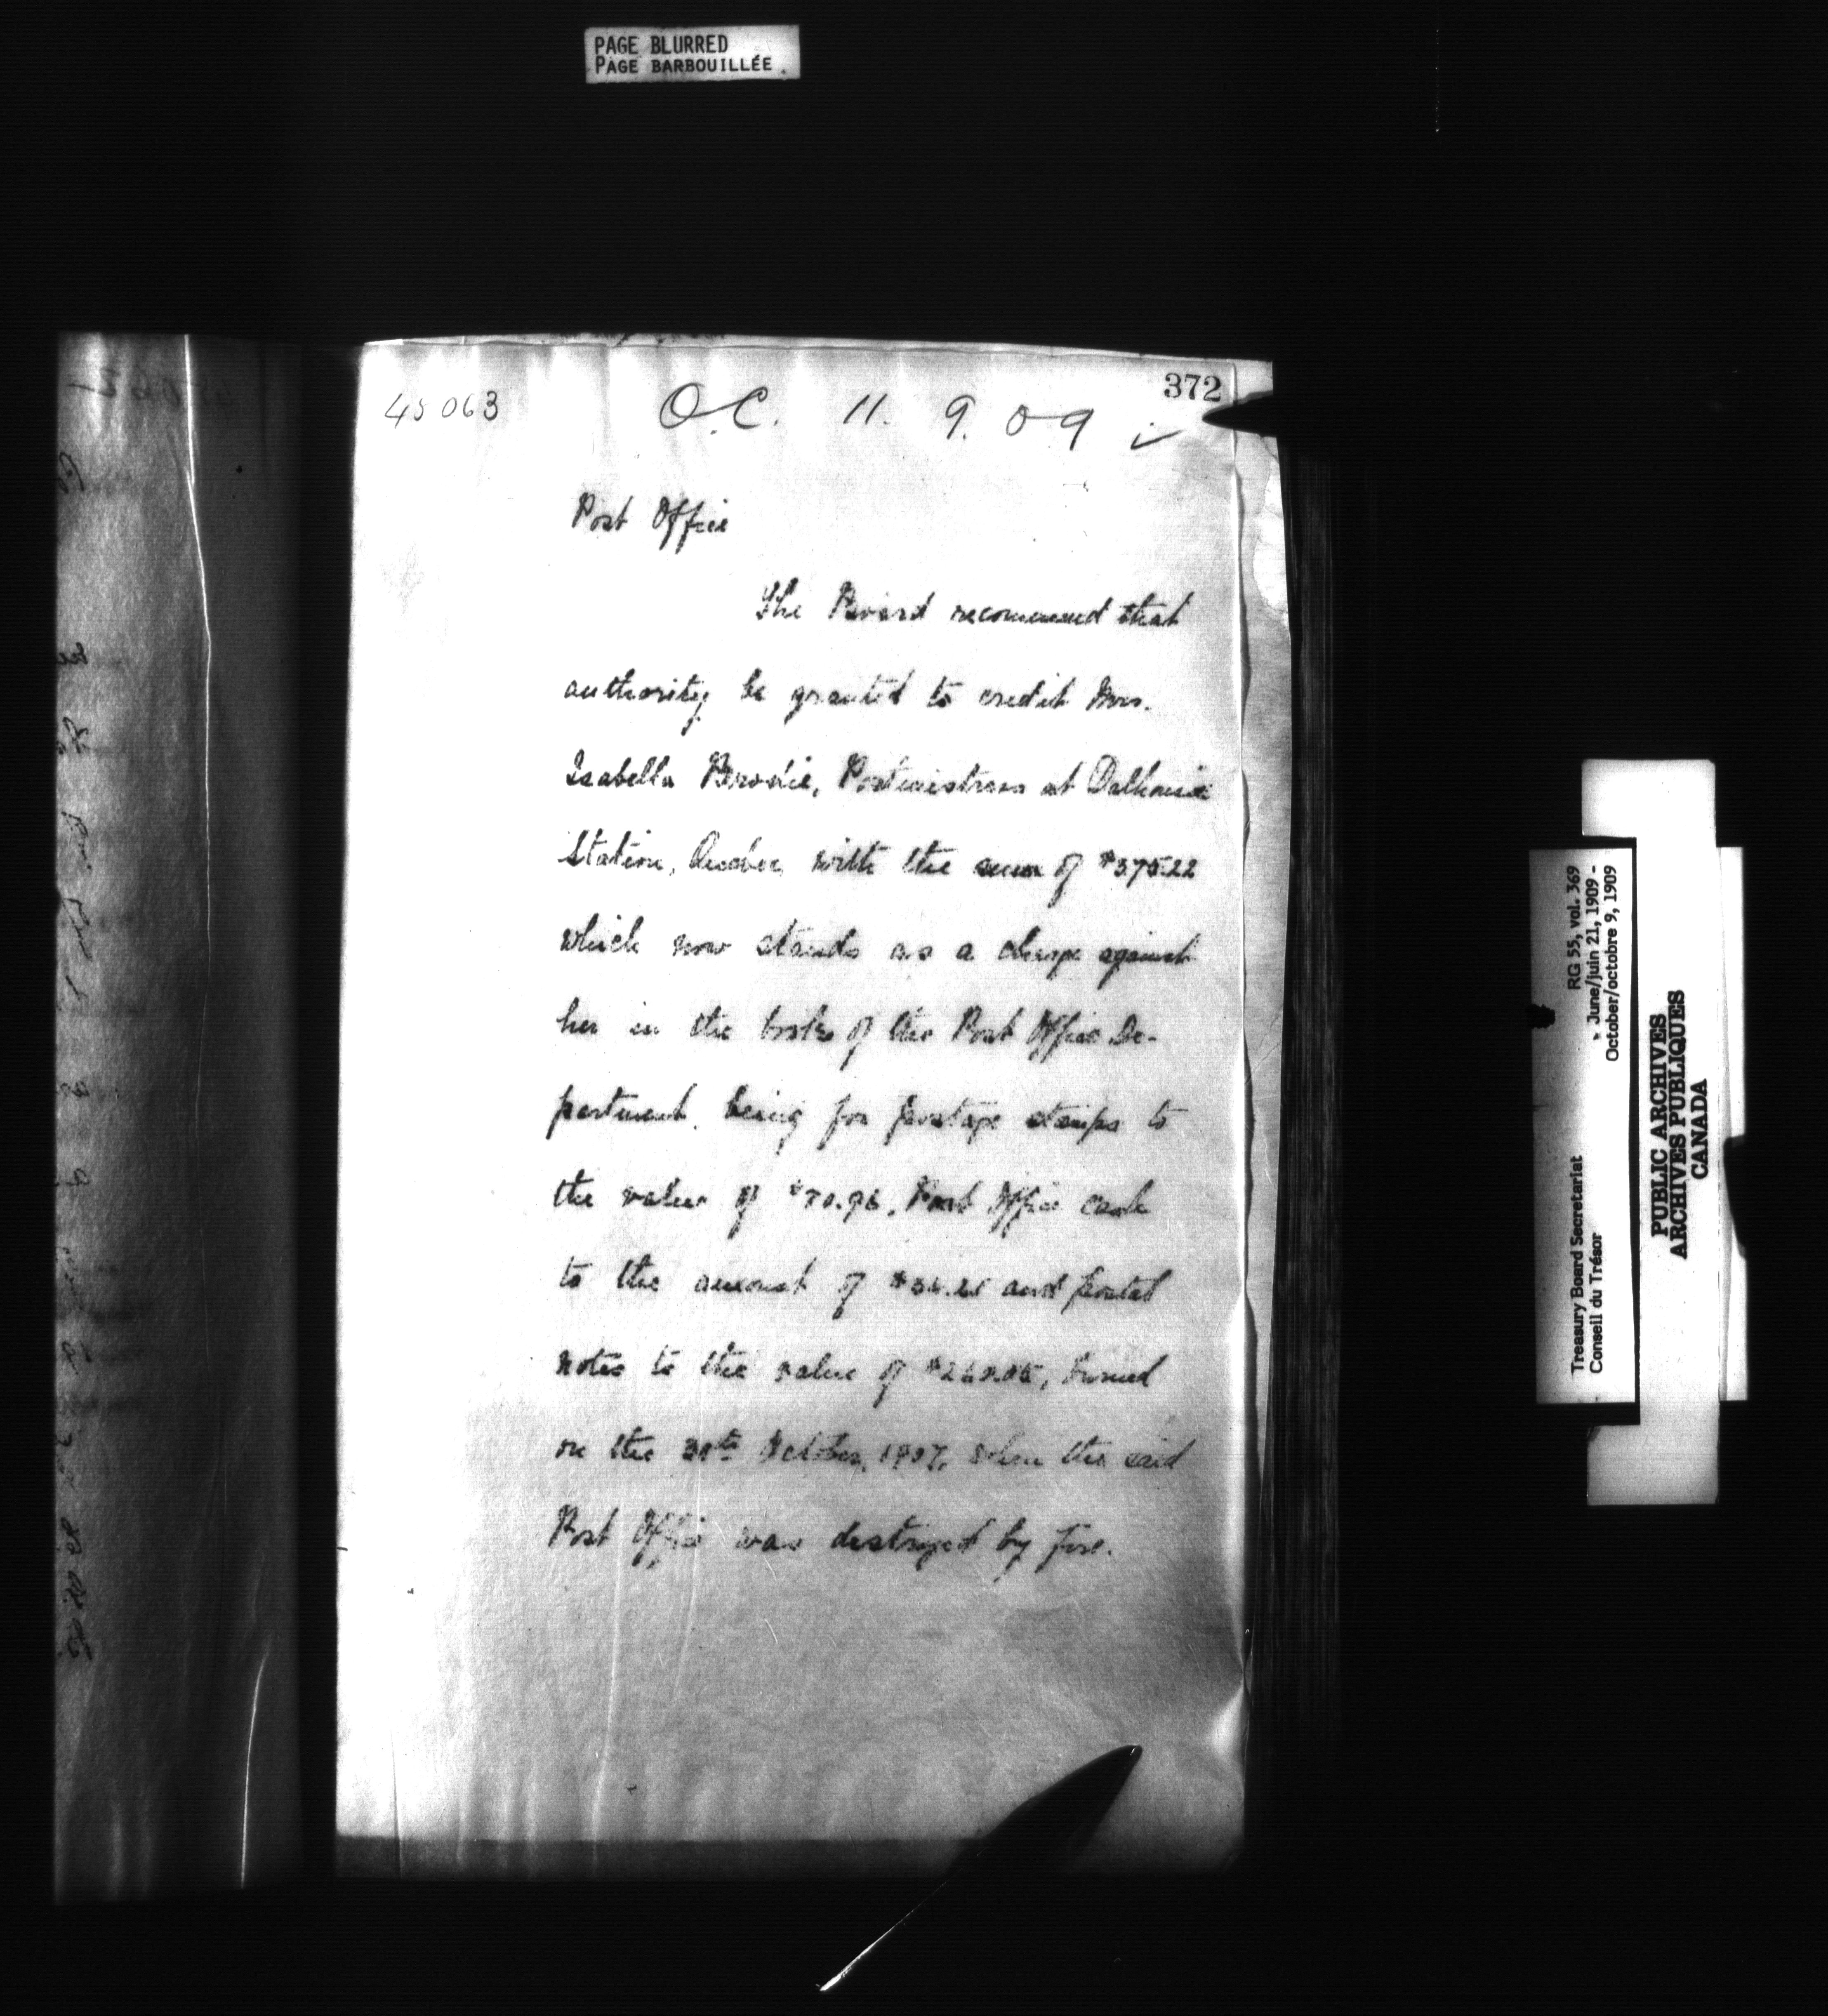 PAGE BLURRED
PAGE BARBOUILLÉE
372
45063
O.C. 11. 9. 09
Post Office
The Board recommend that
authority be granted to credit Mrs.
Isabella Brodie, Postmistress at Dalhousie
Station, Quebec, with the sum of $375.22
which now stands as a charge against
her in the books of the Post Office De-
partment, being for postage stamps to
the value of $70.96, Post Office cash
to the amount of and postal
notes to the value of burned
on the October, 1907, when the said
Post Office was destroyed by fire.
RG 55, vol. 369
June/juin 21, 1909 -
October/octobre 9, 1909
Treasury Board Secretariat
Conseil du Trésor
PUBLIC ARCHIVES
ARCHIVES PUBLIQUES
CANADA